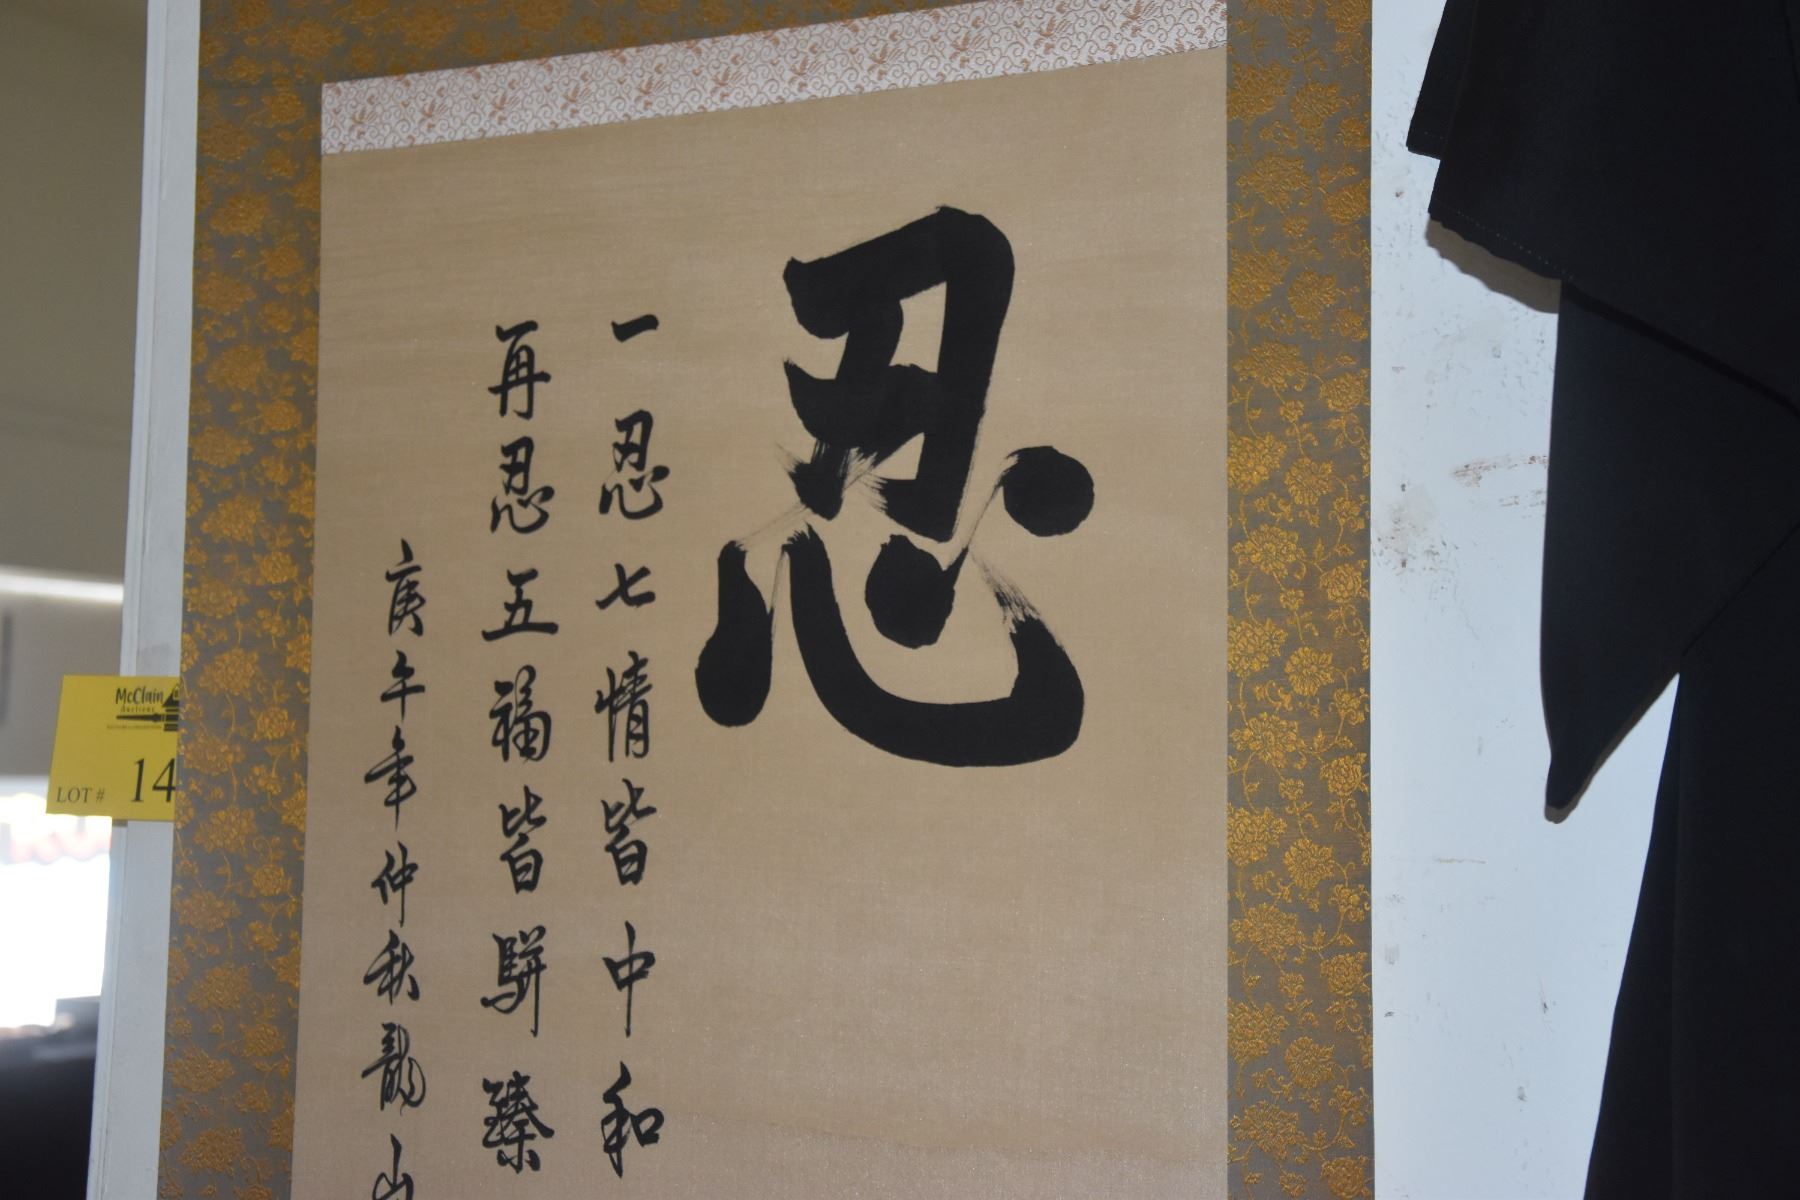 忍
一忍七情皆中和
再忍五福皆駢臻
庚午年仲秋龍山
McClain
Auctions
LOT # 14